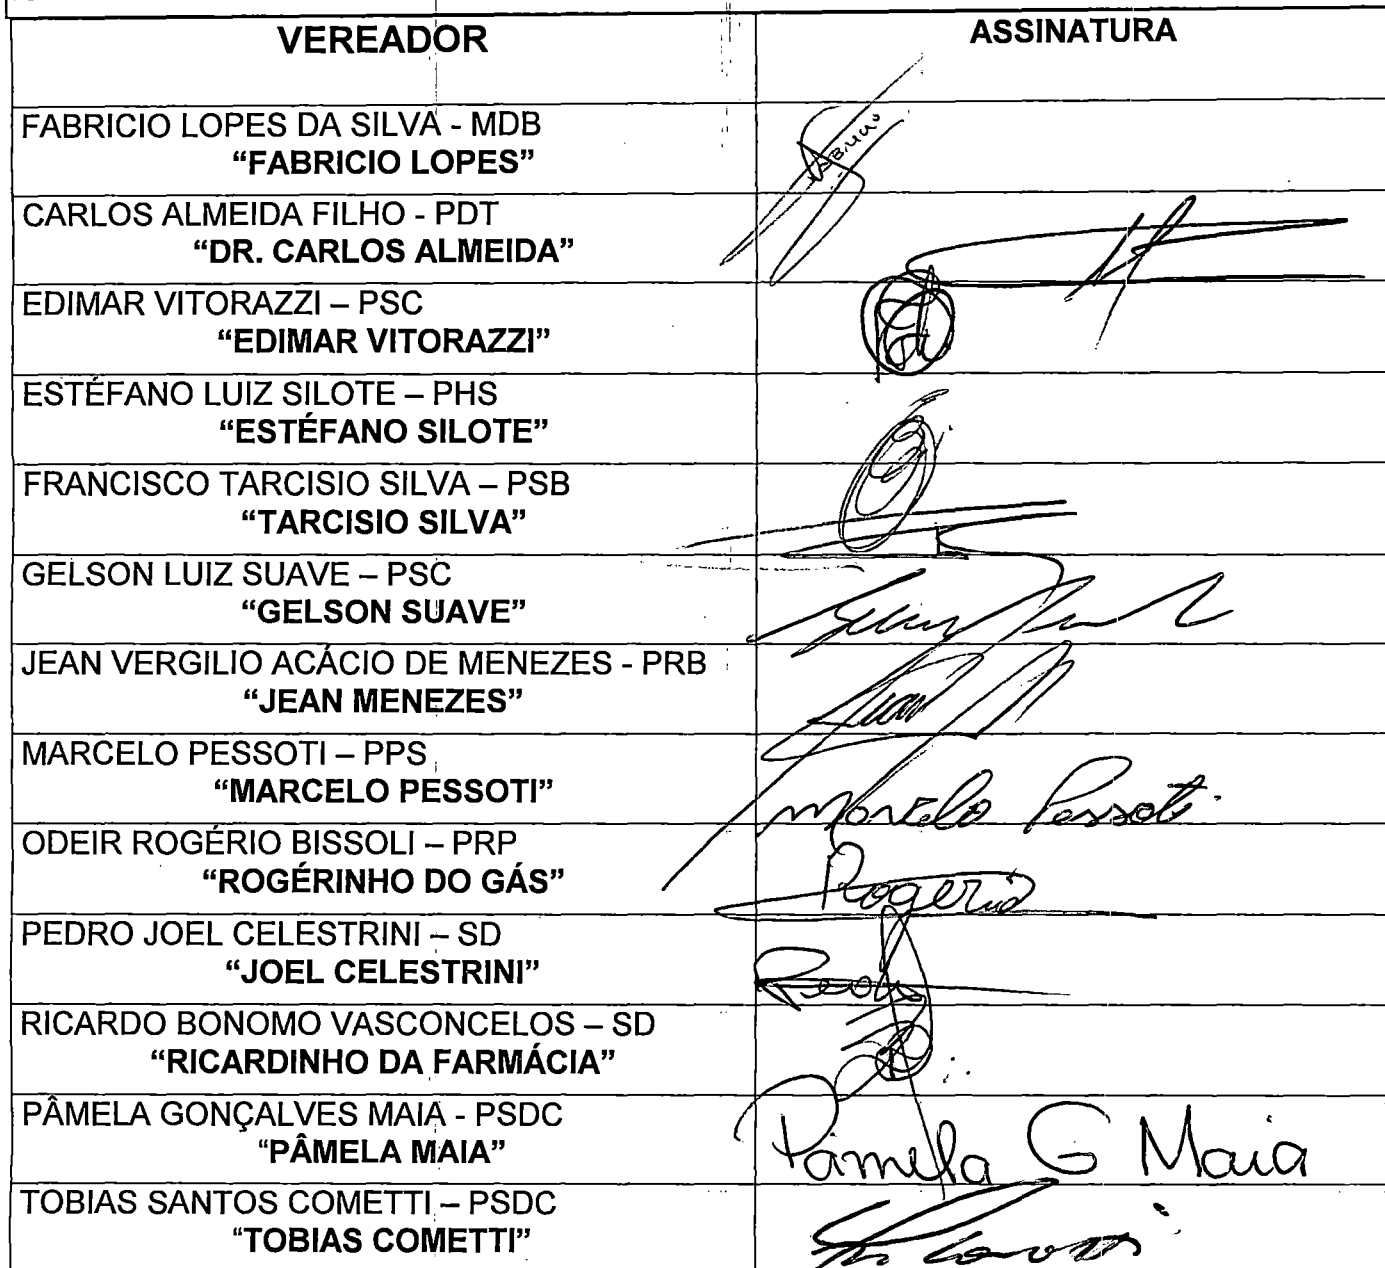 VEREADOR ASSINATURA
FABRICIO LOPES DA SILVA - MDB
“FABRICIO LOPES”
CARLOS ALMEIDA FILHO - PDT
“DR. CARLOS ALMEIDA”
EDIMAR VITORAZZI – PSC
“EDIMAR VITORAZZI”
ESTÉFANO LUIZ SILOTE – PHS
“ESTÉFANO SILOTE”
FRANCISCO TARCISIO SILVA – PSB
“TARCISIO SILVA”
GELSON LUIZ SUAVE – PSC
“GELSON SUAVE”
JEAN VERGILIO ACÁCIO DE MENEZES - PRB
“JEAN MENEZES”
MARCELO PESSOTI – PPS
“MARCELO PESSOTI” Marcelo Pessoti
ODEIR ROGÉRIO BISSOLI – PRP
“ROGÉRINHO DO GÁS” Rogerio
PEDRO JOEL CELESTRINI – SD
“JOEL CELESTRINI”
RICARDO BONOMO VASCONCELOS – SD
“RICARDINHO DA FARMÁCIA”
PÂMELA GONÇALVES MAIA - PSDC
“PÂMELA MAIA” Pâmela G Maia
TOBIAS SANTOS COMETTI – PSDC
“TOBIAS COMETTI”